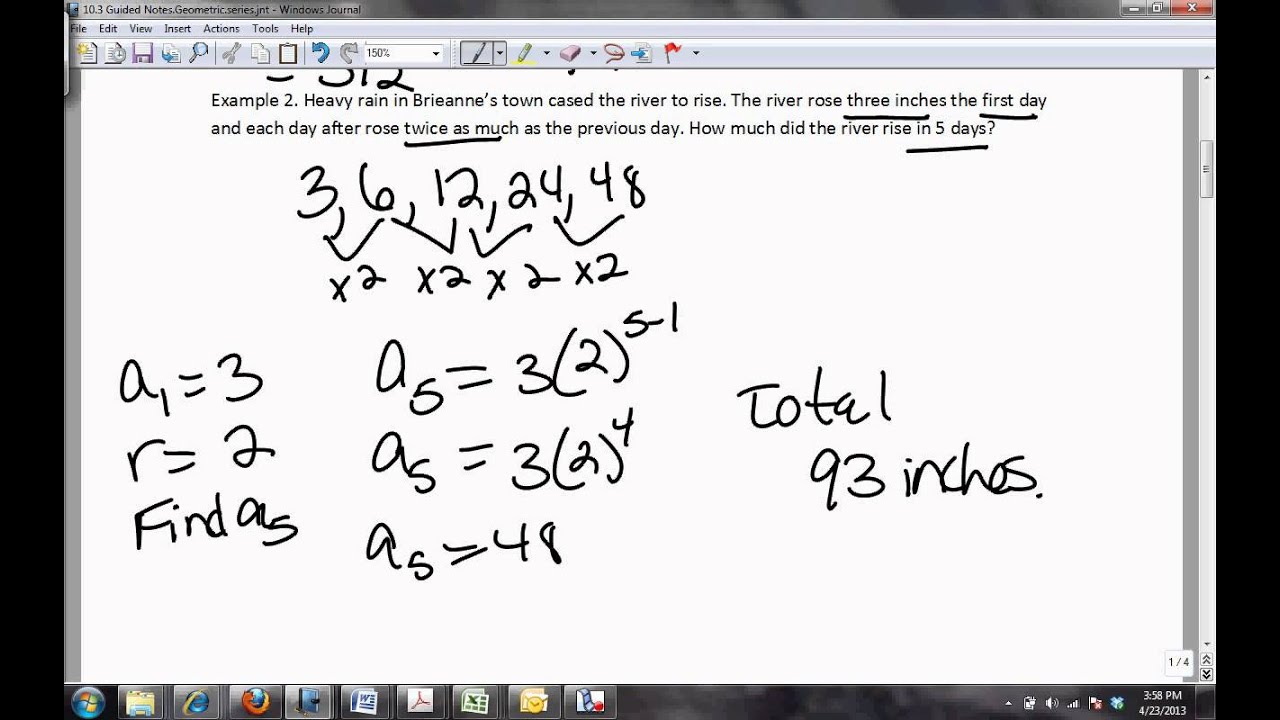 10.3 Guided Notes.Geometric.series.jnt - Windows Journal
File Edit View Insert Actions Tools Help
150%
= 512
Example 2. Heavy rain in Brieanne's town cased the river to rise. The river rose three inches the first day
and each day after rose twice as much as the previous day. How much did the river rise in 5 days?
3, 6, 12, 24, 48
x2 x2 x2 x2
a₁ = 3
r = 2
Find a₅
a₅ = 3(2)⁵⁻¹
a₅ = 3(2)⁴
a₅ = 48
Total
93 inches.
1 / 4
3:58 PM
4/23/2013